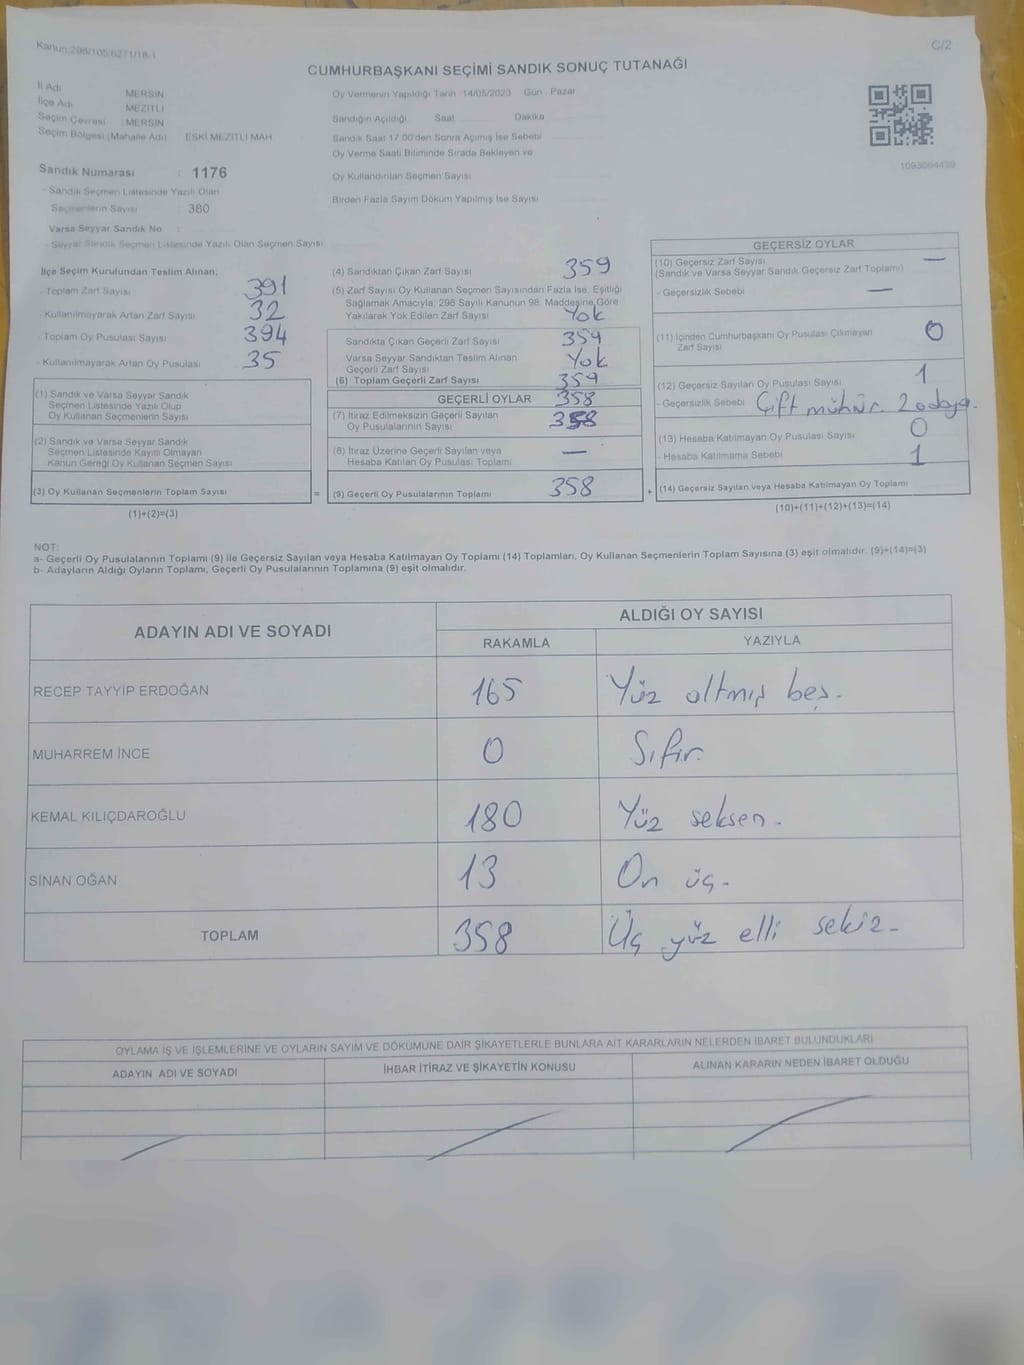 Kanun:298/105,6271/18-1
C/2
CUMHURBAŞKANI SEÇİMİ SANDIK SONUÇ TUTANAĞI
İl Adı : MERSİN
İlçe Adı : MEZİTLİ
Seçim Çevresi : MERSİN
Seçim Bölgesi (Mahalle Adı) ESKİ MEZİTLİ MAH
Oy Vermenin Yapıldığı Tarih 14/05/2023 Gün Pazar
Sandığın Açıldığı Saat Dakika
Sandık Saat 17.00'den Sonra Açılmış İse Sebebi
Oy Verme Saati Bitiminde Sırada Bekleyen ve
Oy Kullandırılan Seçmen Sayısı
Birden Fazla Sayım Döküm Yapılmış İse Sayısı
Sandık Numarası : 1176
- Sandık Seçmen Listesinde Yazılı Olan
Seçmenlerin Sayısı : 380
Varsa Seyyar Sandık No :
- Seyyar Sandık Seçmen Listesinde Yazılı Olan Seçmen Sayısı
İlçe Seçim Kurulundan Teslim Alınan;
- Toplam Zarf Sayısı 391
- Kullanılmayarak Artan Zarf Sayısı 32
Toplam Oy Pusulası Sayısı 394
- Kullanılmayarak Artan Oy Pusulası 35
(1) Sandık ve Varsa Seyyar Sandık
Seçmen Listesinde Yazılı Olup
Oy Kullanan Seçmenlerin Sayısı
(2) Sandık ve Varsa Seyyar Sandık
Seçmen Listesinde Kayıtlı Olmayan
Kanun Gereği Oy Kullanan Seçmen Sayısı
(3) Oy Kullanan Seçmenlerin Toplam Sayısı
(1)+(2)=(3)
(4) Sandıktan Çıkan Zarf Sayısı 359
(5) Zarf Sayısı Oy Kullanan Seçmen Sayısından Fazla İse, Eşitliği
Sağlamak Amacıyla, 298 Sayılı Kanunun 98. Maddesine Göre
Yakılarak Yok Edilen Zarf Sayısı Yok
Sandıkta Çıkan Geçerli Zarf Sayısı 359
Varsa Seyyar Sandıktan Teslim Alınan
Geçerli Zarf Sayısı Yok
(6) Toplam Geçerli Zarf Sayısı 359
GEÇERLİ OYLAR 358
(7) İtiraz Edilmeksizin Geçerli Sayılan
Oy Pusulalarının Sayısı 358
(8) İtiraz Üzerine Geçerli Sayılan veya
Hesaba Katılan Oy Pusulası Toplamı —
= (9) Geçerli Oy Pusulalarının Toplamı 358 +
GEÇERSİZ OYLAR
(10) Geçersiz Zarf Sayısı —
(Sandık ve Varsa Seyyar Sandık Geçersiz Zarf Toplamı)
- Geçersizlik Sebebi —
(11) İçinden Cumhurbaşkanı Oy Pusulası Çıkmayan 0
Zarf Sayısı
(12) Geçersiz Sayılan Oy Pusulası Sayısı 1
- Geçersizlik Sebebi Çift mühür. 2 adaya.
(13) Hesaba Katılmayan Oy Pusulası Sayısı 0
- Hesaba Katılmama Sebebi 1
(14) Geçersiz Sayılan veya Hesaba Katılmayan Oy Toplamı
(10)+(11)+(12)+(13)=(14)
NOT:
a- Geçerli Oy Pusulalarının Toplamı (9) ile Geçersiz Sayılan veya Hesaba Katılmayan Oy Toplamı (14) Toplamları, Oy Kullanan Seçmenlerin Toplam Sayısına (3) eşit olmalıdır. (9)+(14)=(3)
b- Adayların Aldığı Oyların Toplamı, Geçerli Oy Pusulalarının Toplamına (9) eşit olmalıdır.
ADAYIN ADI VE SOYADI ALDIĞI OY SAYISI
RAKAMLA YAZIYLA
RECEP TAYYİP ERDOĞAN 165 Yüz altmış beş.
MUHARREM İNCE 0 Sıfır.
KEMAL KILIÇDAROĞLU 180 Yüz seksen.
SİNAN OĞAN 13 On üç.
TOPLAM 358 Üç yüz elli sekiz.
OYLAMA İŞ VE İŞLEMLERİNE VE OYLARIN SAYIM VE DÖKÜMÜNE DAİR ŞİKAYETLERLE BUNLARA AİT KARARLARIN NELERDEN İBARET BULUNDUKLARI
ADAYIN ADI VE SOYADI İHBAR İTİRAZ VE ŞİKAYETİN KONUSU ALINAN KARARIN NEDEN İBARET OLDUĞU